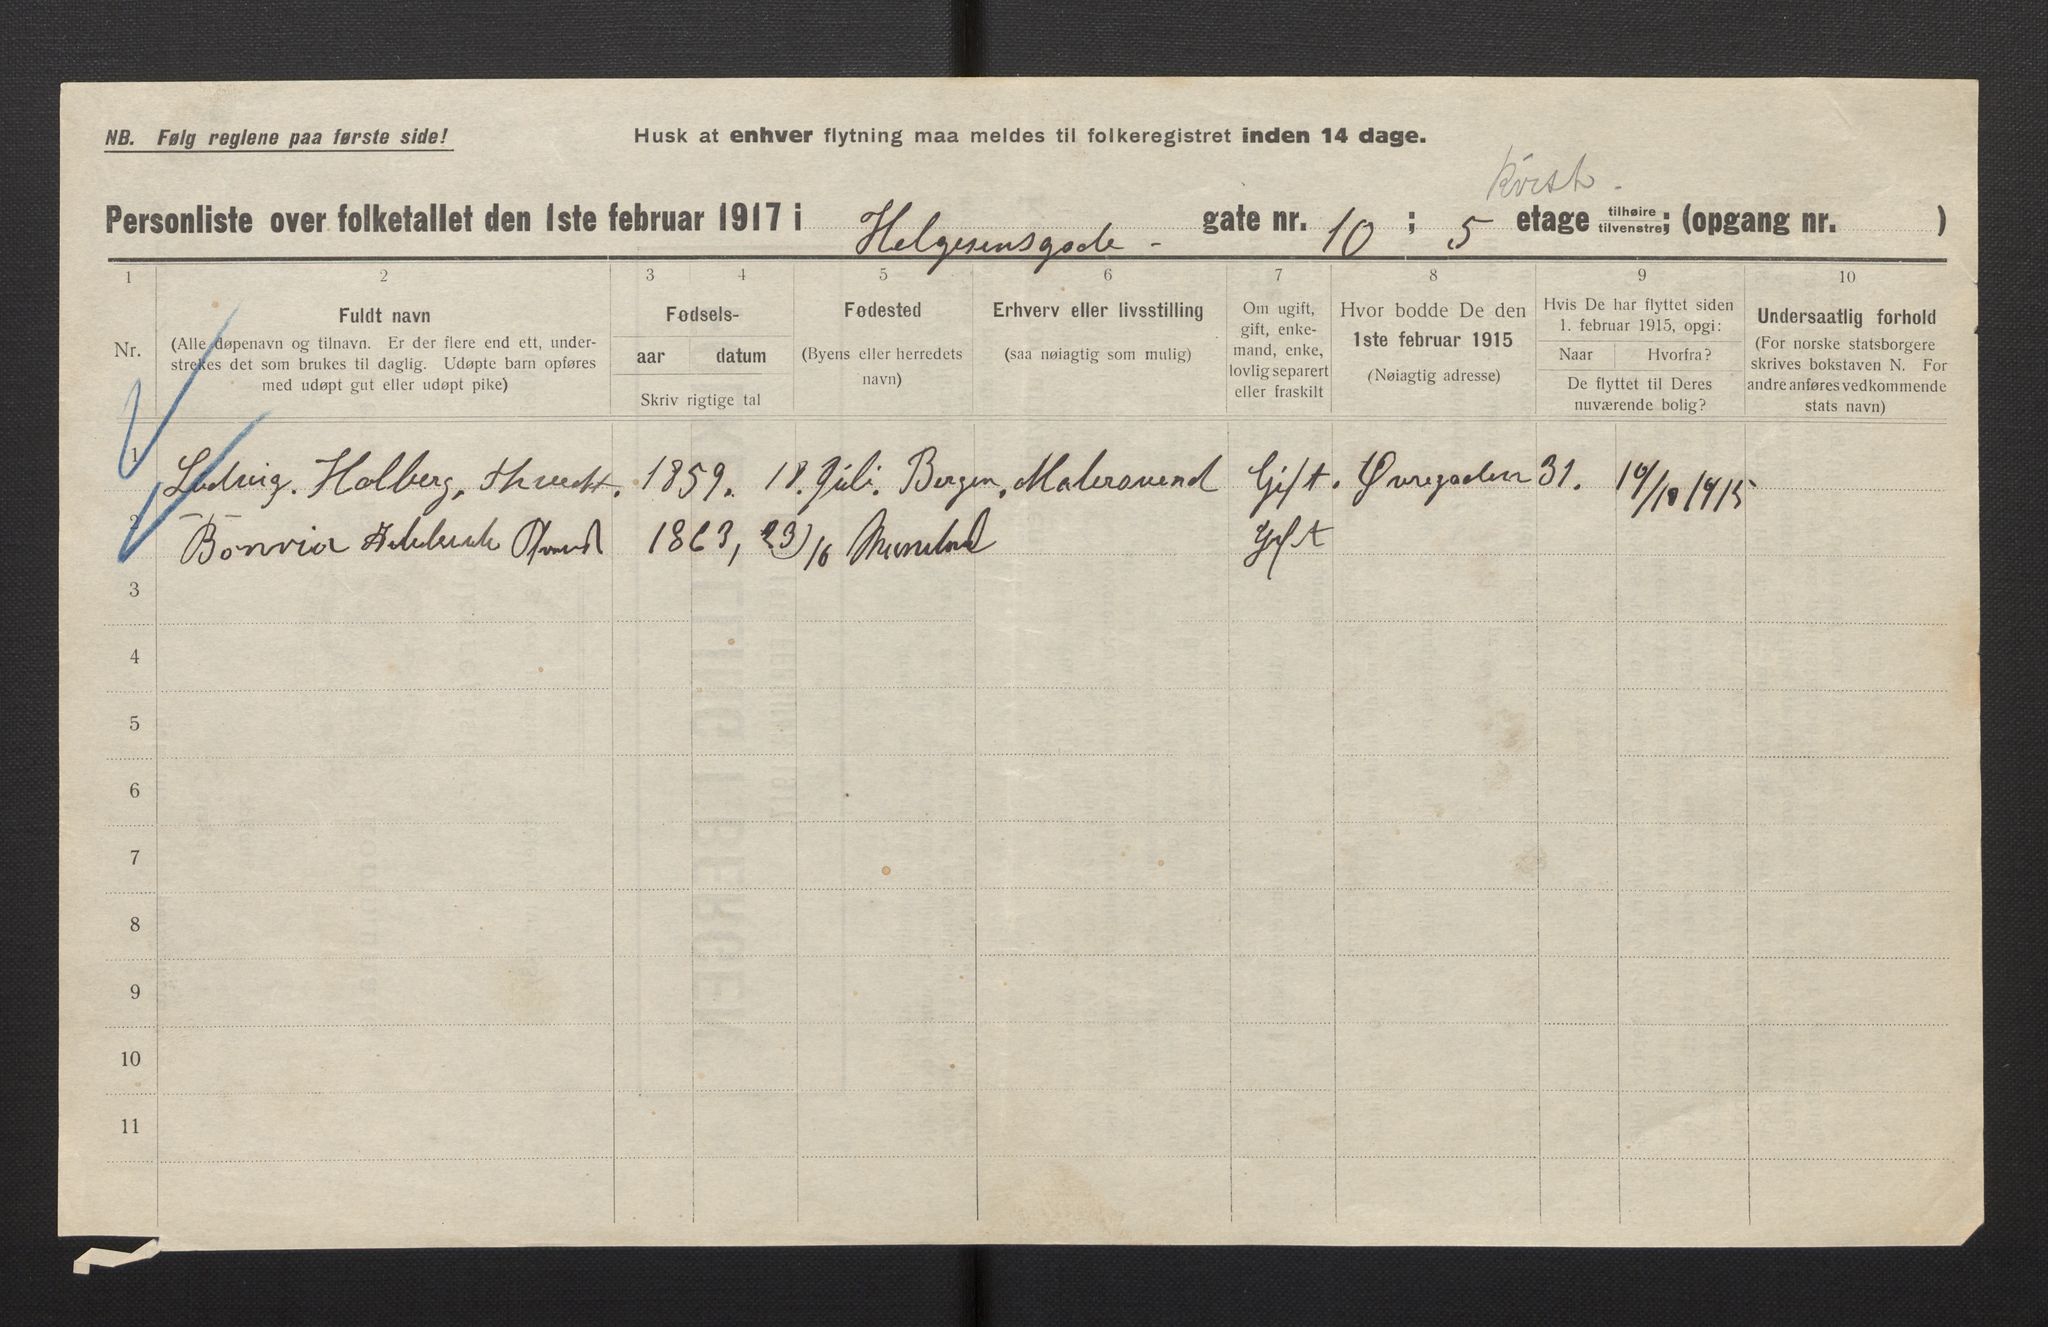 NB. Følg reglene paa første side!
Husk at enhver flytning maa meldes til folkeregistret inden 14 dage.
Kvist.
Personliste over folketallet den 1ste februar 1917 i Helgesensgade - gate nr. 10 ; 5 etage tilhøire tilvenstre; (opgang nr. )
1 2 3 4 5 6 7 8 9 10
Nr.
Fuldt navn
(Alle døpenavn og tilnavn. Er der flere end ett, under-
strekes det som brukes til daglig. Udøpte barn opføres
med udøpt gut eller udøpt pike)
Fødsels-
aar datum
Skriv rigtige tal
Fødested
(Byens eller herredets
navn)
Erhverv eller livsstilling
(saa nøiagtig som mulig)
Om ugift,
gift, enke-
mand, enke,
lovlig separert
eller fraskilt
Hvor bodde De den
1ste februar 1915
(Nøiagtig adresse)
Hvis De har flyttet siden
1. februar 1915, opgi:
Naar Hvorfra?
De flyttet til Deres
nuværende bolig?
Undersaatlig forhold
(For norske statsborgere
skrives bokstaven N. For
andre anføres vedkommende
stats navn)
1 Ludvig. Holberg. 1859. 18. Juli. Bergen. Malersvend Gift. Øvregaden 31. 1915
2 1863, 23/ Gift
3
4
5
6
7
8
9
10
11